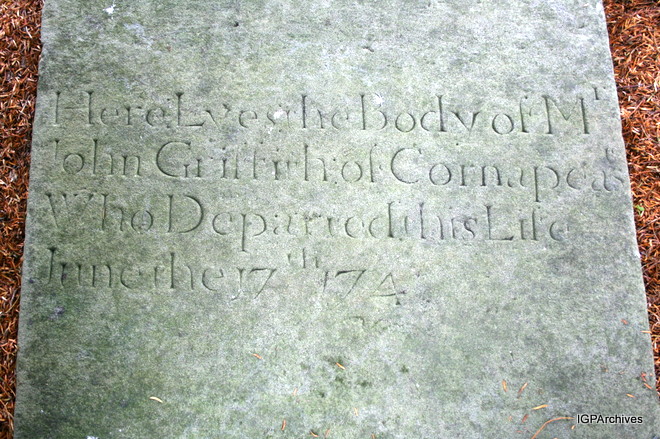 Here Lyes the Body of Mr
John Griffith of Cornapeas
Who Departed this Life
June the 17th 174
IGPArchives